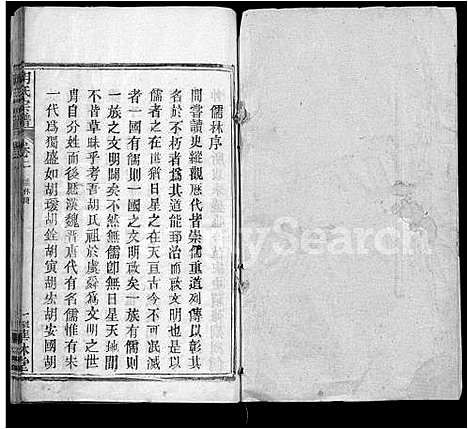 儒林序
間嘗讀史縱觀歷代皆崇儒重道列傳以彰其
名於不朽者爲其道能郅治而啟文明也是以
儒者之在世猶日星之在天亘古今不可泯滅
者一國有儒則一國之文明啟矣一族有儒則
一族之文明闢矣不然無儒卽無日星天地間
不皆草昧乎考吾胡氏祖於虞舜爲文明之世
胄自分姓而後歷漢魏晋唐代有名儒惟有宋
一代爲獨盛如胡瑗胡銓胡寅胡宏胡安國胡
胡氏宗譜
儒林序
一
MySearch